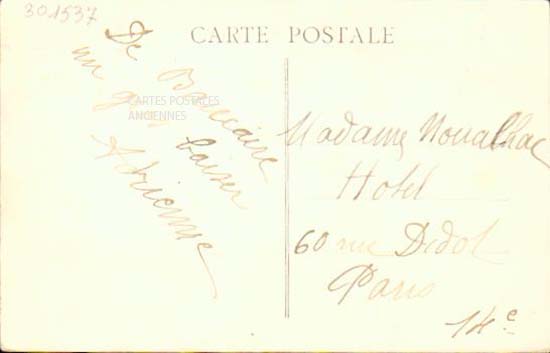 301537
CARTE POSTALE
De Beaucaire
un gros baiser
Adrienne
CARTES POSTALES
ANCIENNES
Madame Noualhac
Hotel
60 rue Didot
Paris
14e